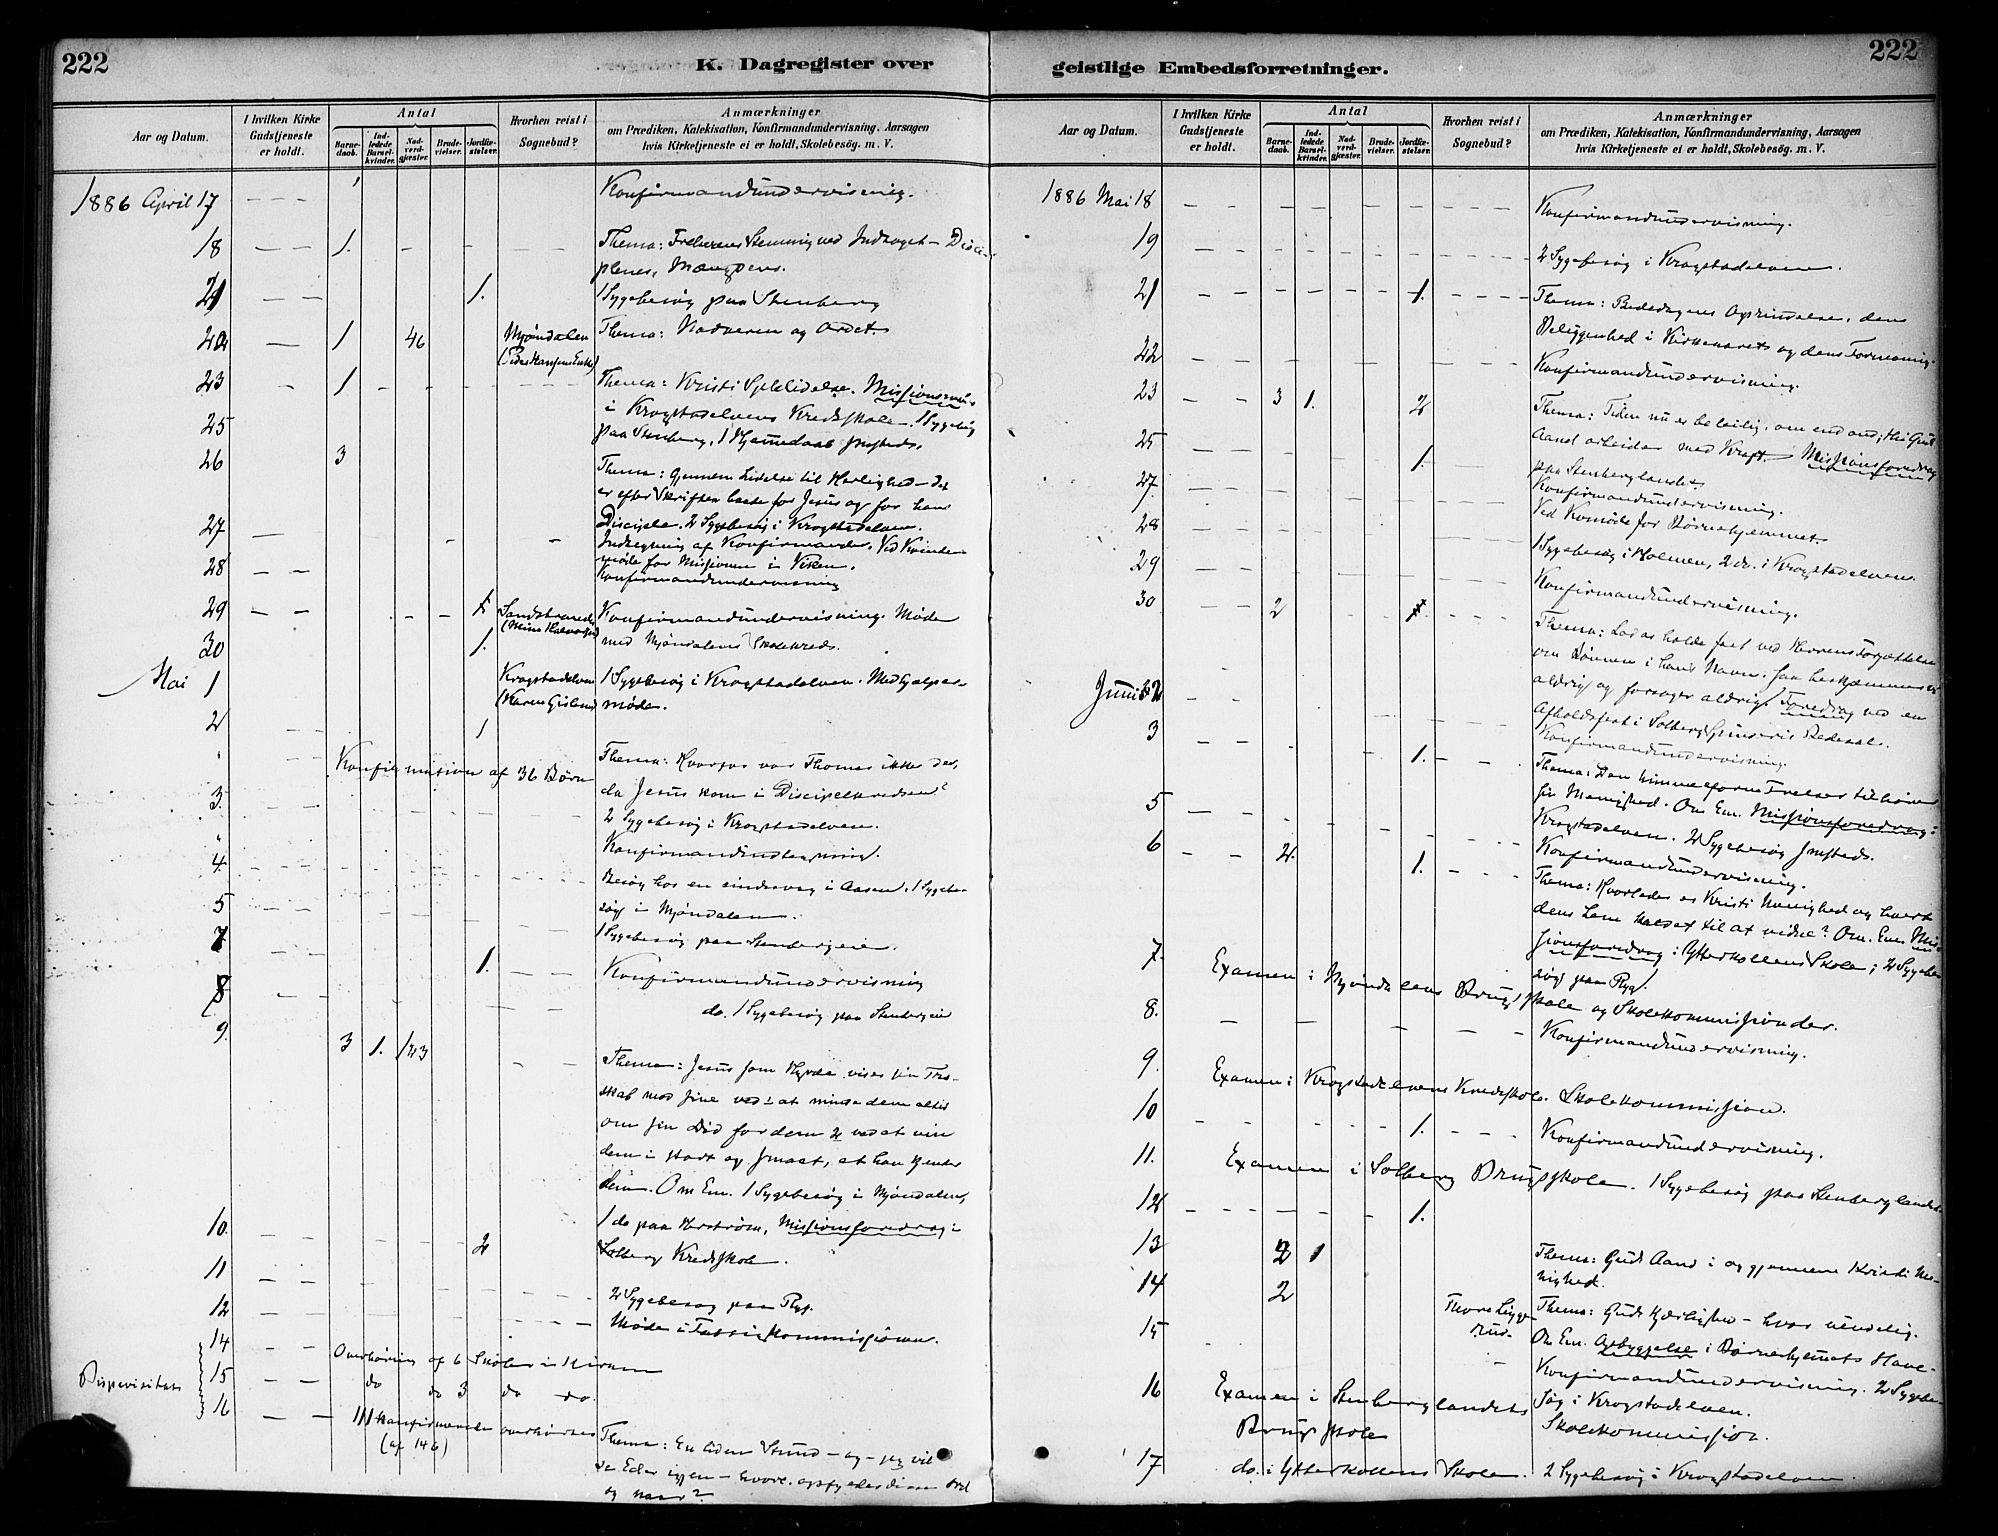 222
K. Dagregister over
Aar og Datum.
I hvilken Kirke Gudstjeneste er holdt.
Antal
Barnedaab.
Indledede Barselkvinder.
Nadverdgjester
Brudevielser.
Jordfæstelser.
Hvorhen reist i Sognebud?
Anmærkninger
om Prædiken, Katekisation, Konfirmandundervisning, Aarsagen
hvis Kirketjeneste ei er holdt, Skolebesøg. m. V.
1886 April 17 Konfirmandundervisning.
18 1. Thema: Frelserens Stemning ved Indtoget – Disci-
plenes, Mængdens.
21 1. 1 Sygebesøg paa Stenberg
22 1 46 Mjøndalen Thema: Nadveren og Ordet.
23 1 Thema: Kristi Lidelse. Missionsmøde
i Krogstadelvens Kredsskole. 1 Sygebesøg
25 paa Stenberg, 1 Hjemmedaab smsteds.
26 3 Thema: Gjennem Lidelse til Herlighed – det
er efter Skriften baade for Jesus og for hans
Disciple. 2 Sygebesøg i Krogstadelven.
27 Indtegning af Konfirmander. Ved Kvinde-
møde for Missionen i Viken.
28 Konfirmandundervisning
29 1. Sandstranden Konfirmandundervisning. Møde
30 1. med Mjøndalens Skolekreds.
Mai 1 Krogstadelven 1 Sygebesøg i Krogstadelven.
(Karen Gislesen) møde.
2 1
" Konfirmation af 36 Børn Thema: Hvorfor var Thomas ikke der,
3. da Jesus kom i Discipelkredsen?
2 Sygebesøg i Krogstadelven.
" Konfirmandindtegning.
4 Besøg hos en sindssvag i Aasen. 1 Sygebe-
5 søg i Mjøndalen.
7 1 Sygebesøg paa Stenbergeie.
1. Konfirmandundervisning
8 do. 1 Sygebesøg paa Stenbergeie
9. 3 1. 123
Thema: Jesus som Hyrde viser sin Tro-
skab mod sine ved 1 at minde dem altid
om sin Død for dem 2 ved at vise
dem i stort og smaat, at han kjender
dem. Om Em. 1 Sygebesøg i Mjøndalen,
10. 1 do paa Horstrøm, Missionsforedrag i
2 Solberg Kredsskole.
11
12 2 Sygebesøg paa Ryg.
Møde i Fattigkommissionen.
14 Overhøring af 6 Skoler i Kirken
Bispevisitas 15 do do 3 do do.
16 111 Konfirmander overhørtes
(af 146) Thema: En liden Stund – og jeg vil
se Eder igjen – hvorl. opfyldes disse Ord
og naar?
222
geistlige Embedsforretninger.
Aar og Datum.
I hvilken Kirke Gudstjeneste er holdt.
Antal
Barnedaab.
Indledede Barselkvinder.
Nadverdgjester
Brudevielser.
Jordfæstelser.
Hvorhen reist i Sognebud?
Anmærkninger
om Prædiken, Katekisation, Konfirmandundervisning, Aarsagen
hvis Kirketjeneste ei er holdt, Skolebesøg. m. V.
1886 Mai 18 Konfirmandundervisning.
19 2 Sygebesøg i Krogstadelven.
21 1. Thema: Bededagens Oprindelse, dens
Beliggenhed i Kirkeaaret og dens Formaning.
22 Konfirmandundervisning.
23 3 1. 2 Thema: Tiden nu er beleilig, om end ond; thi Guds
Aand arbeider med Kraft. Missionsforedrag
paa Stenberglandet.
25 1. Konfirmandundervisning.
27 Ved Kvmøde for Børnehjemmet.
28 1 Sygebesøg i Holmen, 2 do. i Krogstadelven.
29 Konfirmandundervisning.
30 2 Thema: Lad os holde fast ved Herrens Forjættelse
om Bønnen i hans Navn: saa beskjæmmes vi
aldrig og forsager aldrig. Foredrag ved en
Afholdsfest i Solberg Spinneris Bedesal.
Juni 2 Konfirmandundervisning.
3 1. Thema: Den himmelfarne Frelser tilhører
sin Menighed. Om Em. Missionsforedrag i
Krogstadelven. 2 Sygebesøg smsteds.
5 Konfirmandundervisning.
6 2. 1. Thema: Hvorledes er Kristi Menighed og hvert
dens Lem kaldet til at vidne? Om Em. Mis-
sionsforedrag i Ytterkollens Skole; 2 Sygebe-
søg paa Ryg.
7. Examen i Mjøndalens Brugsskole og Skolekommission der.
8. Konfirmandundervisning.
9. Examen i Krogstadelvens Kredsskole. Skolekommission.
10 1. Konfirmandundervisning.
11. Examen i Solberg Brugsskole. 1 Sygebesøg paa Stenberglandet.
12 1.
13 2 1 Thema: Guds Aand i og gjennem Kristi Me-
nighed.
14 2 Thema: Guds Kjærlighed – hvor uendelig.
Om Em. Opbyggelse i Børnehjemmets Have.
15 Konfirmandundervisning. 2 Sygebe-
søg i Krogstadelven.
16 Examen i Stenberglandets Brugsskole Skolekommission.
17 do. i Ytterkollens Skole. 2 Sygebesøg i Krogstadelven.